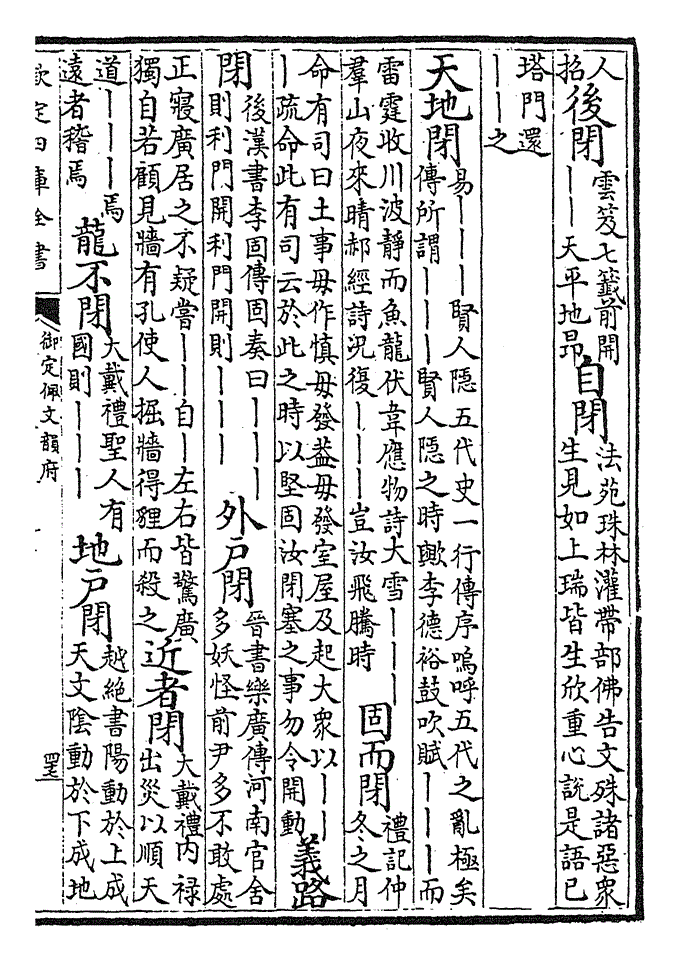 人招後閉雲笈七籤前開｜｜天平地昂自閉法苑珠林灌帶部佛告文殊諸惡衆生見如上瑞皆生欣重心說是語已
塔門還｜｜之
天地閉易｜｜｜賢人隱五代史一行傳序嗚呼五代之亂極矣傳所謂｜｜｜賢人隱之時歟李德裕鼓吹賦｜｜｜而
雷霆收川波靜而魚龍伏韋應物詩大雪｜｜｜羣山夜來晴郝經詩況復｜｜｜豈汝飛騰時固而閉禮記仲冬之月
命有司曰土事毋作慎毋發蓋毋發室屋及起大衆以｜｜｜疏命此有司云於此之時以堅固汝閉塞之事勿令開動義路
閉後漢書李固傳固奏曰｜｜｜則利門開利門開則｜｜｜外戶閉晉書樂廣傳河南官舍多妖怪前尹多不敢處
正寢廣居之不疑嘗｜｜自｜左右皆驚廣獨自若顧見牆有孔使人掘牆得貍而殺之近者閉大戴禮內祿出災以順天
道｜｜｜焉遠者稽焉龍不閉大戴禮聖人有國則｜｜｜地戶閉越絕書陽動於上成天文陰動於下成地
欽定四庫全書
御定佩文韻府